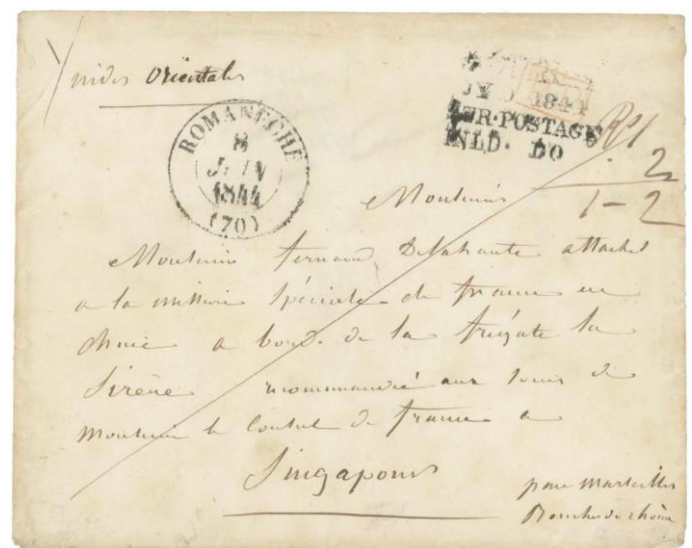 indes Orientales
ROMANÈCHE
8
JUIN
1844
(70)
1844
POSTAGE
INLD. DO
2
1-2
Monsieur
Monsieur fernand Delahante attaché
a la mission Spéciale de france en
chine a bord de la frégate la
Sirène recommandée aux soins de
monsieur le Consul de france a
Singapour
par marseilles
Bouches du rhône